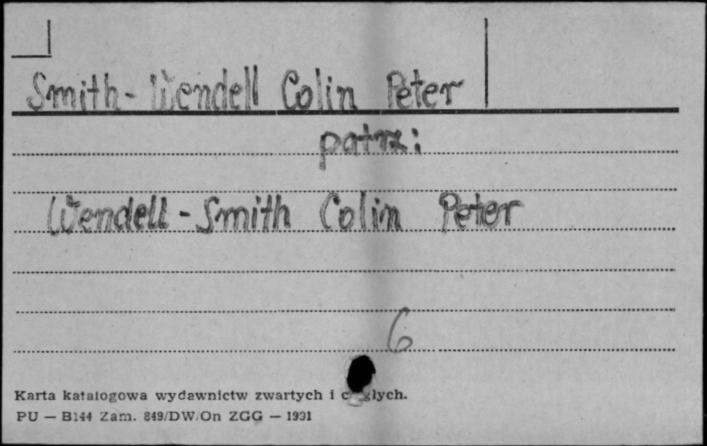 Smith-Wendell Colin Peter
patrz:
Wendell-Smith Colin Peter
6
Karta katalogowa wydawnictw zwartych i
PU — B144 Zam. 849/DW/On ZGG — 1991